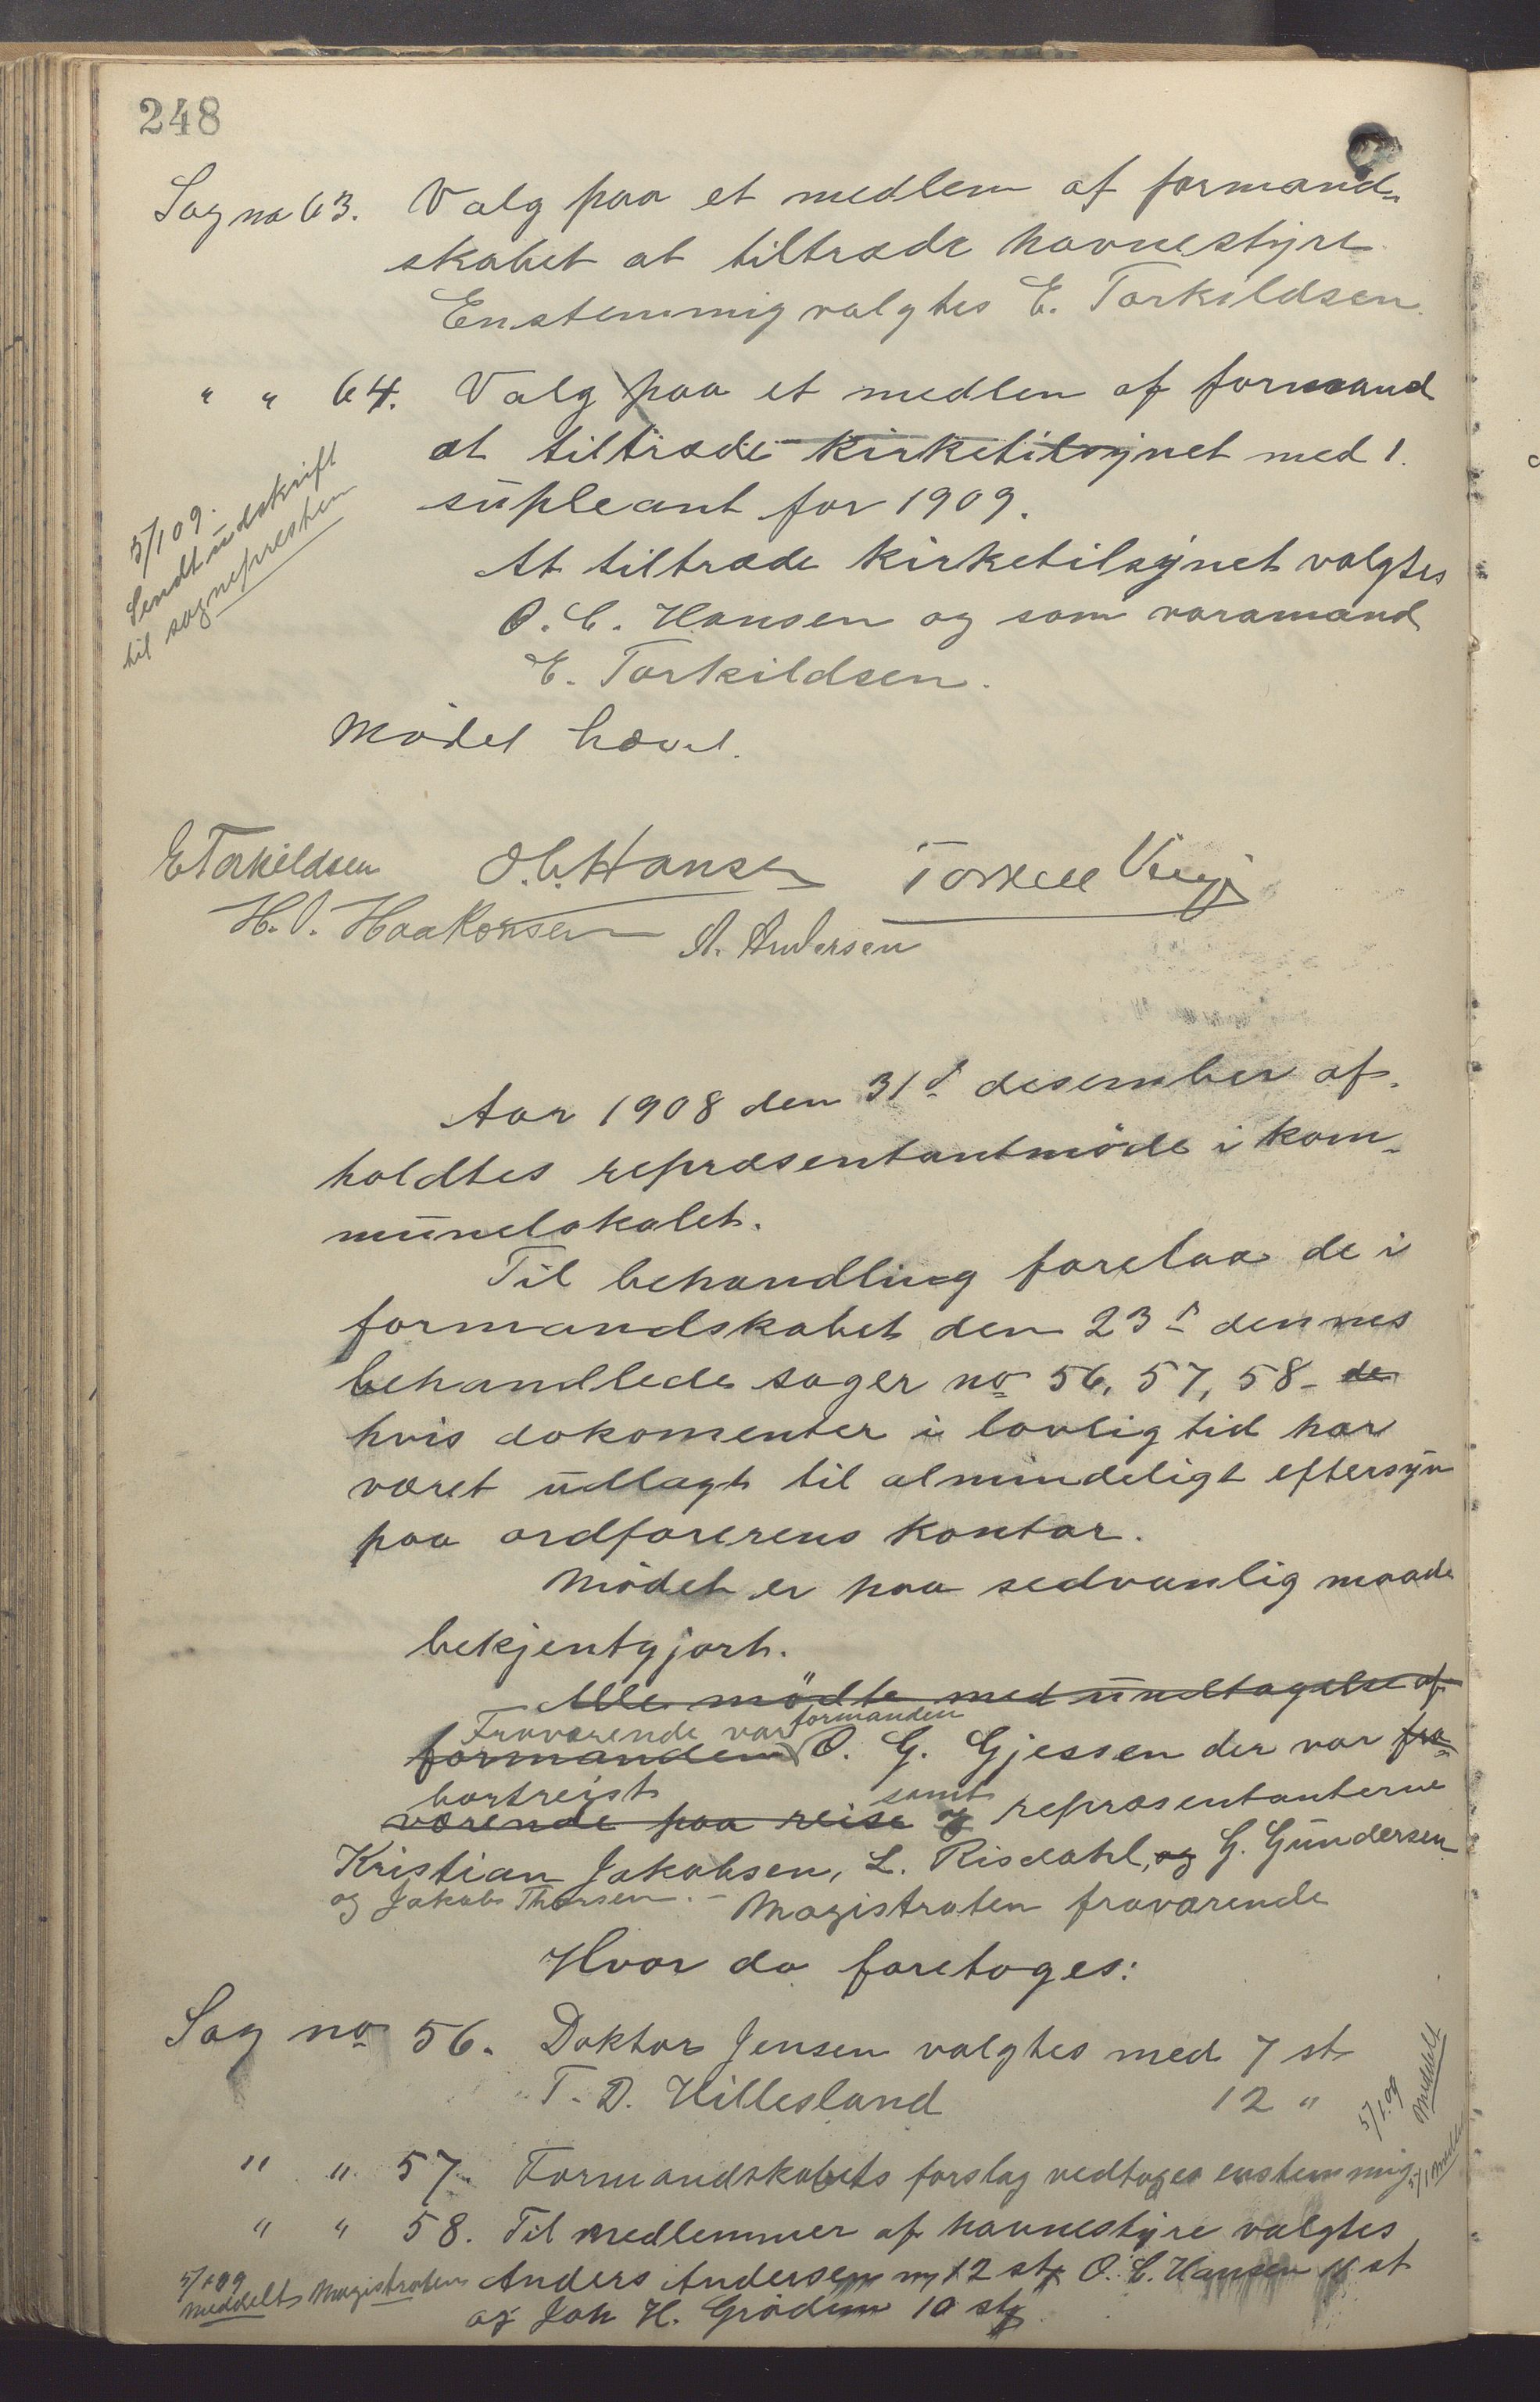 248
Sag no 63. Valg paa et medlem af formand-
skabet at tiltræde havnestyre
Enstemmig valgtes E. Torkildsen.
" " 64. Valg paa et medlem af formand
at tiltræde kirketilsynet med 1.
supleant for 1909.
5/1 09.
Sendt udskrift
til sognepresten
At tiltræde kirketilsynet valgtes
O. C. Hansen og som varamand
E. Torkildsen.
Mødet hævet.
E Torkildsen O. C. Hansen Torkell
H. O. Haakonsen A. Andersen
Aar 1908 den 31d desember af-
holdtes repræsentantmöde i kom-
munelokalet.
Til behandling forelaa de i
formandskabet den 23d dennes
behandlede sager no 56, 57, 58 - de
hvis dokomenter i lovlig tid har
været udlagt til almindeligt eftersyn
paa ordförerens kontor.
Mødet er paa sedvanlig maade
bekjentgjort.
Alle mödte med undtagelse af
Fraværende var formanden
formanden O. G. Gjessen der var fra-
bortreist samt
værende paa reise og repræsentanterne
Kristian Jakobsen, L. Risdahl, og G. Gundersen
og Jakob Thorsen. - Magistraten fraværende
Hvor da foretoges:
Sag no 56. Doktor Jensen valgtes med 7 st
T. D. Hillesland 12 "
5/1.09 Meddelt
" " 57. Formandskabets forslag vedtoges enstemmig
5/1
" " 58. Til medlemmer af havnestyre valgtes
5/1 09
meddelt Magistraten
Anders Andersen m 12 st, O. C. Hansen 11 st
og Joh H. Grödem 10 st